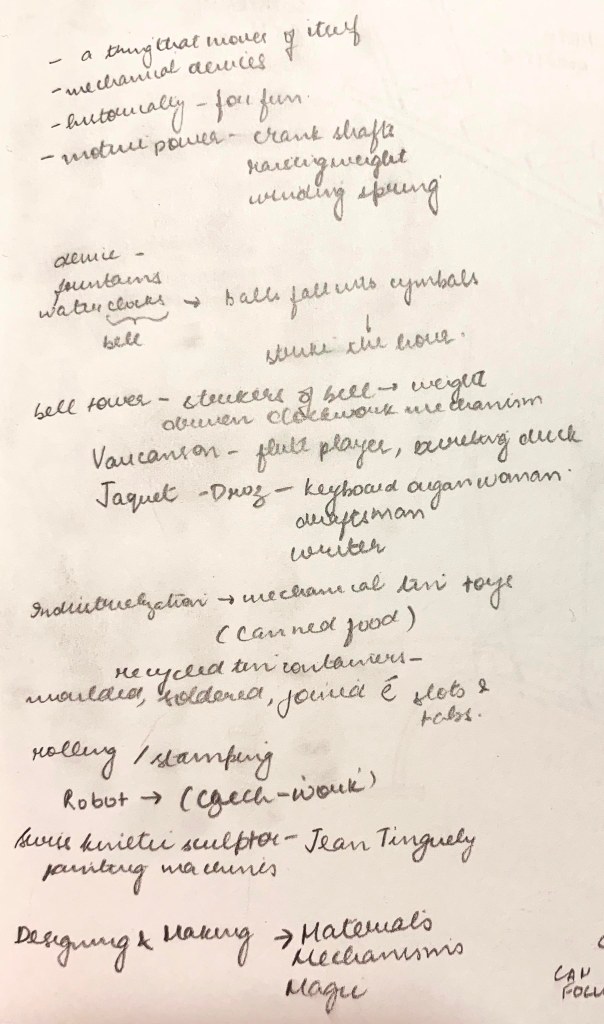 - a thing that moves of itself
- mechanical devices
- historically - for fun.
- motive power - crank shafts
raising weight
winding spring
device -
fountains
water clocks → balls fall into cymbals
bell ↓
strike the hour.
bell tower - strikers of bell → weight
driven clockwork mechanism
Vaucanson - flute player, excreting duck
Jaquet - Droz - keyboard organ woman.
draftsman
writer
Industrialization → mechanical tin toys
(canned food)
recycled tin containers -
moulded, soldered, joined c̄ slots &
tabs.
rolling / stamping
Robot → (czech - 'work')
Swiss kinetic sculptor - Jean Tinguely
painting machines
Designing & Making → Materials
Mechanisms
Magic
CAN